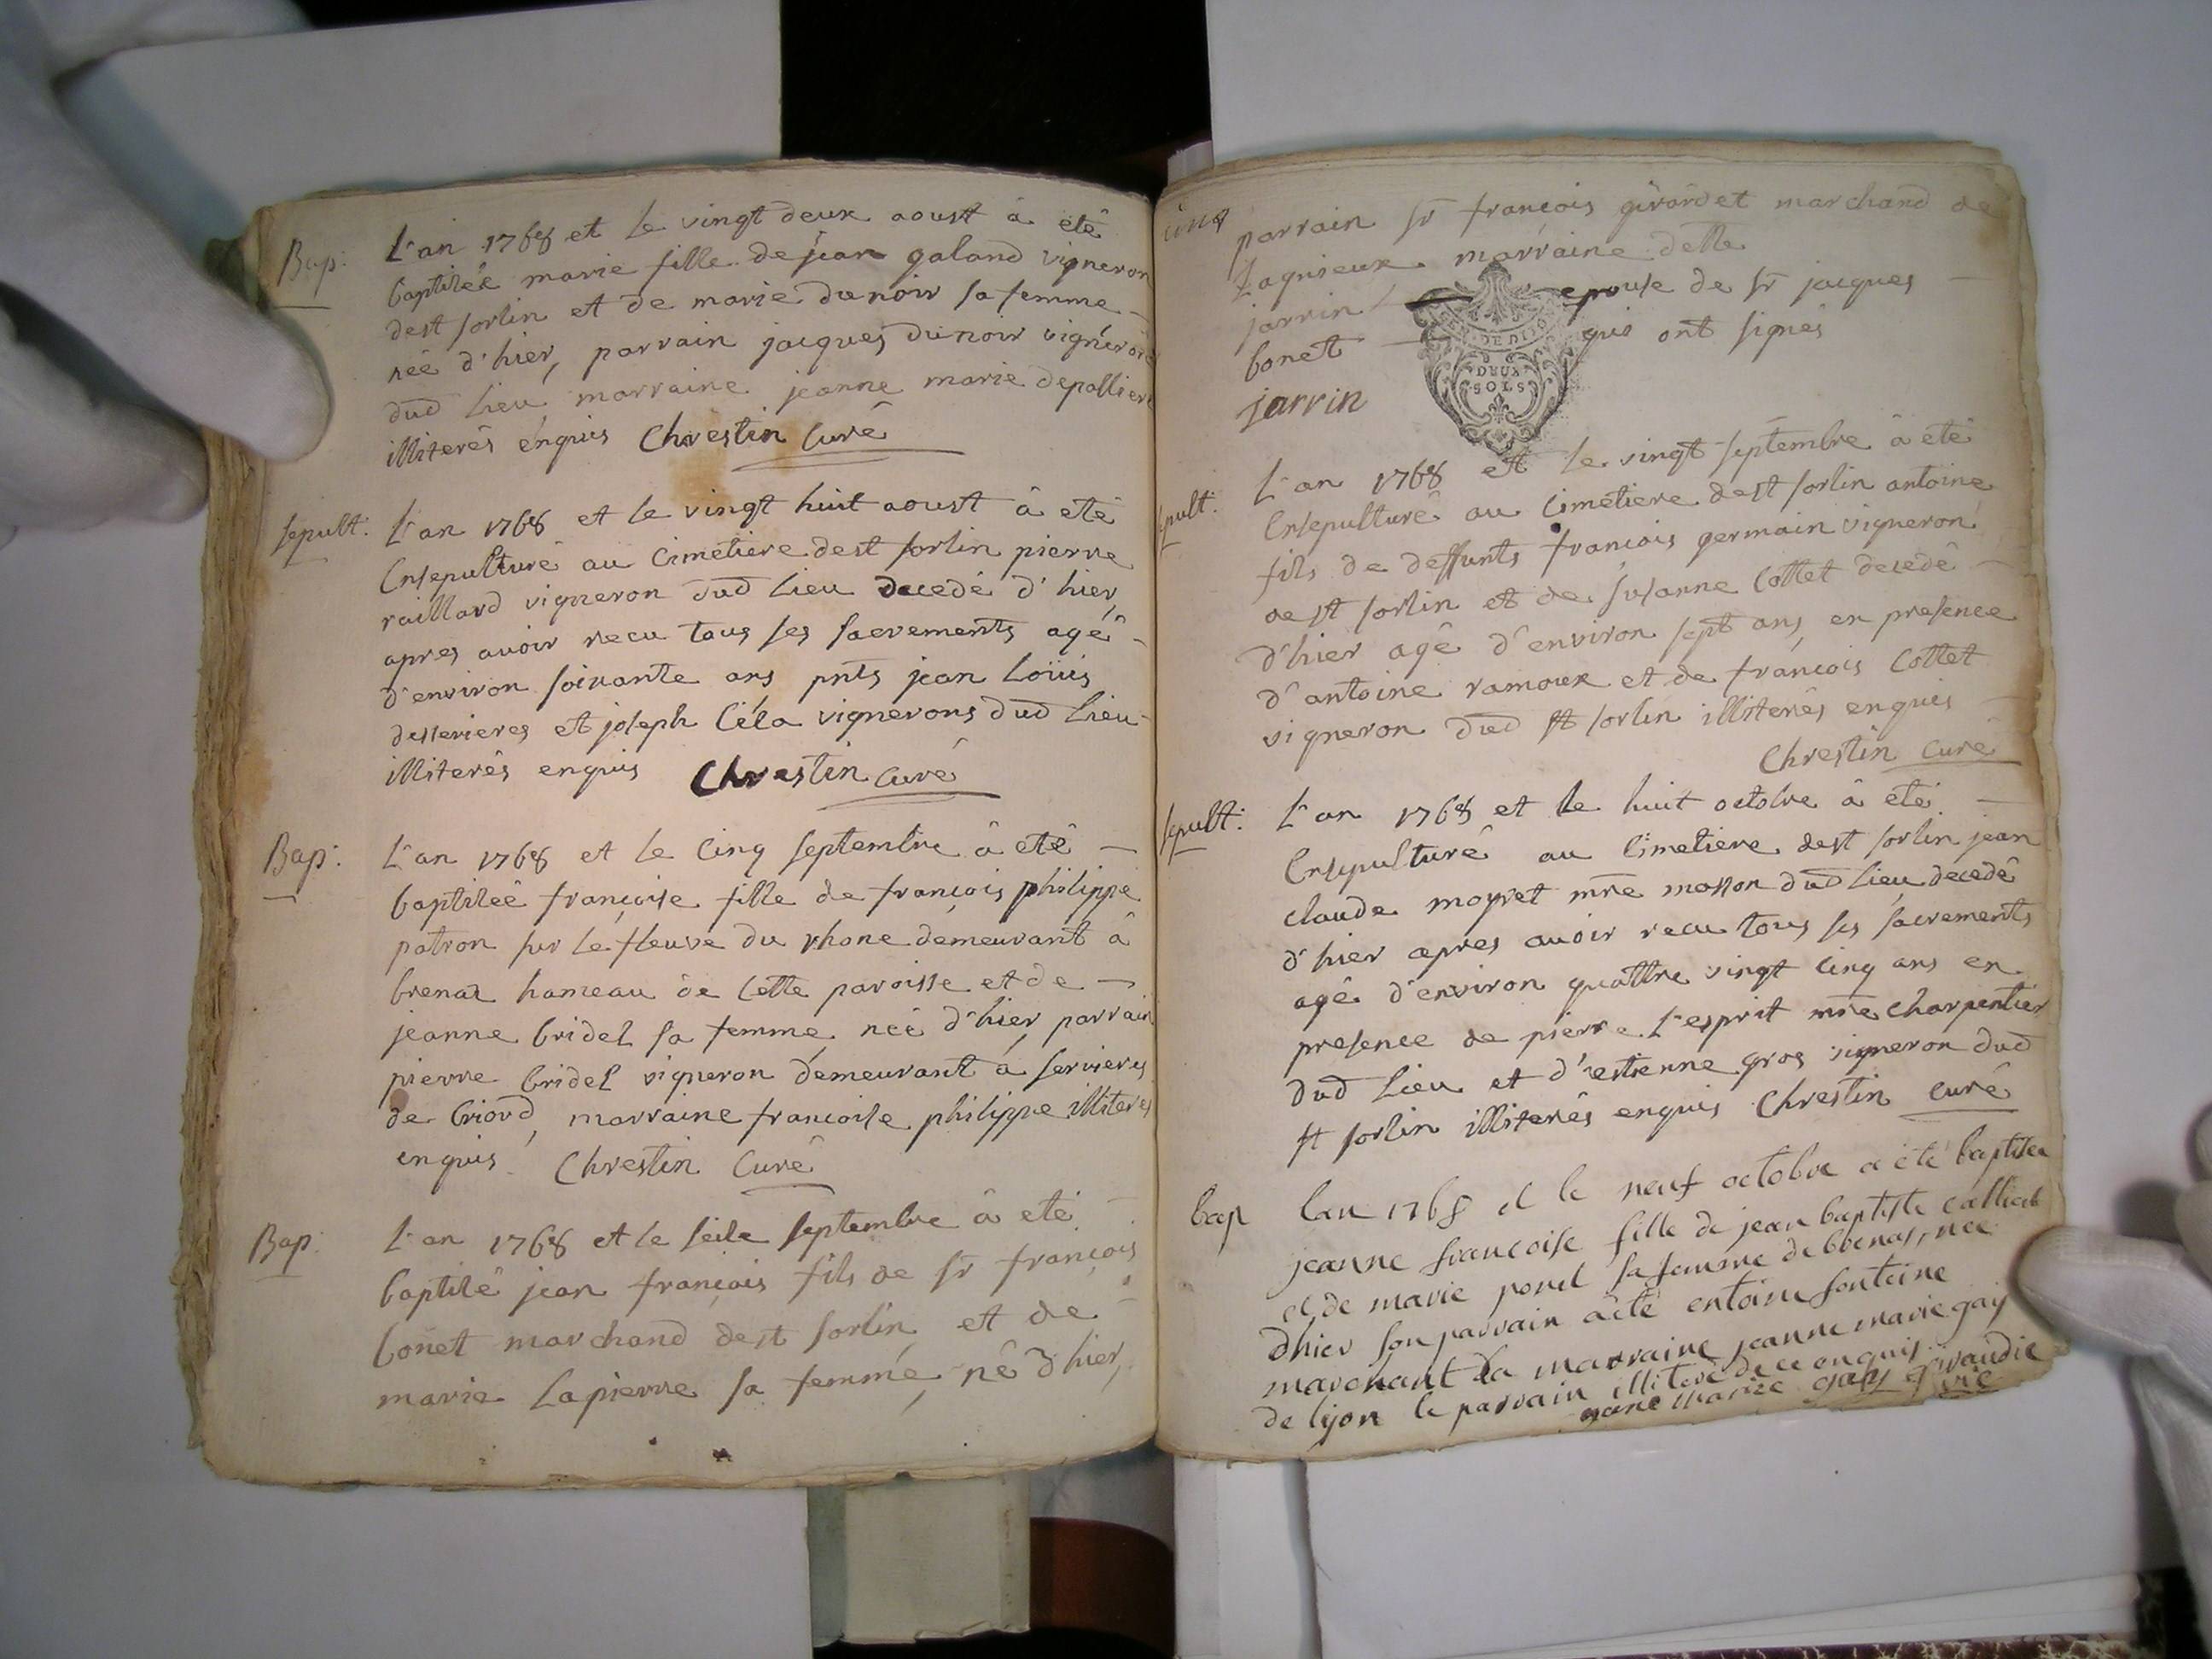 Bap: L'an 1768 et le vingt deux aoust à eté
baptiseé marie fille de jean galand vigneron
de st sorlin et de marie dunoir sa femme
neé d'hier, parrain jacques dunoir vigneron
dud lieu marraine jeanne marie depalliere
illiterés enquis Chrestin Curé
sepult: L'an 1768 et le vingt huit aoust à eté
Ensepulturé au Cimetiere de st sorlin pierre
raillard vigneron dud lieu decedé d'hier,
apres avoir recu tous ses sacrements agé
d'environ soixante ans pnts jean Loüis
desserieres et joseph Cela vignerons dud lieu
illiterés enquis Chrestin Curé
Bap: L'an 1768 et le Cinq septembre à eté
baptiseé françoise fille de françois philippe
patron sur le fleuve du rhone demeurant à
brenaz hameau de Cette paroisse et de
jeanne bridel sa femme neé d'hier, parrain
pierre bridel vigneron demeurant à servieres
de briord, marraine francoise philippe illiteres
enquis Chrestin Curé
Bap: L'an 1768 et le seise septembre à eté
baptisé jean françois fils de sr françois
bonet marchand de st sorlin et de
marie Lapierre sa femme, né d'hier,
parrain sr francois girardet marchand de
Lagnieux marraine delle
jarrin epouse de sr jacques
bonet qui ont signés
GEN. DE DIJON
DEUX
SOLS
jarrin
sepult: L'an 1768 et le vingt septembre à eté
Ensepulturé au Cimetiere de st sorlin antoine
fils de deffunts francois germain vigneron
de st sorlin et de susanne Cottet decedé
d'hier agé d'environ sept ans, en presence
d'antoine ramoux et de francois Cottet
vigneron dud st sorlin illiterés enquis
Chrestin Curé
sepult: L'an 1768 et le huit octobre à eté
Ensepulturé au Cimetiere de st sorlin jean
claude moyret mre masson dud lieu decedé
d'hier apres avoir recu tous ses sacrements
agé d'environ quattre vingt Cinq ans en
presence de pierre L'esprit mre charpentier
dud lieu et d'estienne gros vigneron dud
st sorlin illiterés enquis Chrestin Curé
bap lan 1768 et le neuf octobre a eté baptisee
jeanne francoise fille de jean baptiste
et de marie ponet sa femme de bbenas, nee
dhier son parrain a eté entoine fonteine
marchant la marraine jeanne marie gay
de lyon le parrain illiteré de ce enquis
jane marie gay girandie vic